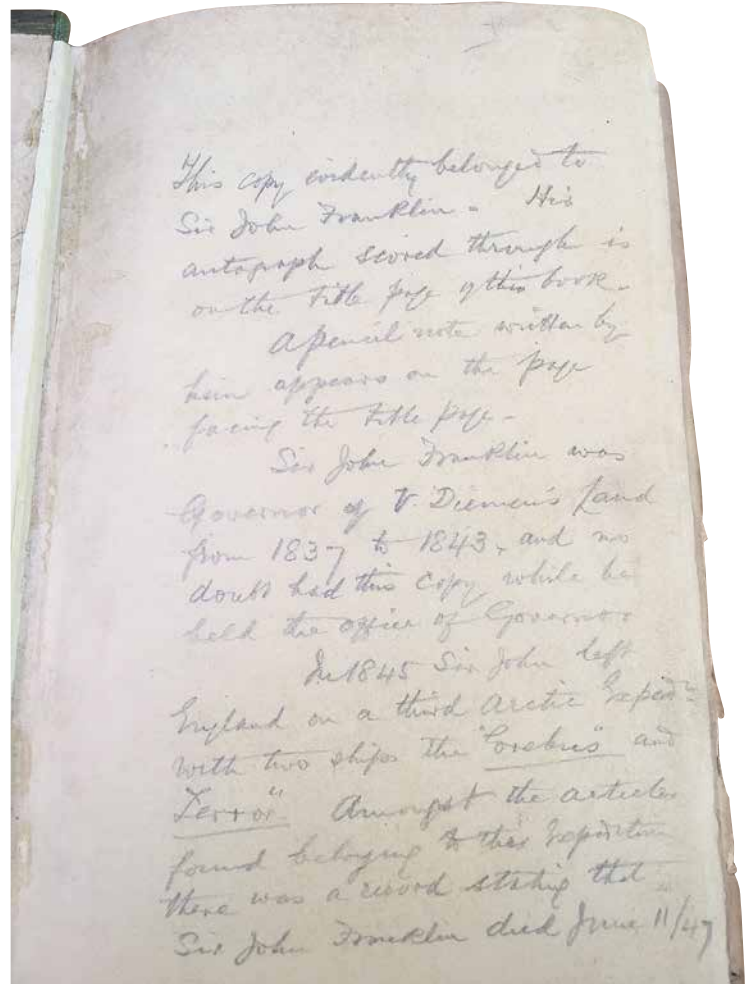 This copy evidently belonged to
Sir John Franklin - His
autograph scored through is
on the title page of this book.
A pencil note written by
him appears on the page
facing the title page -
Sir John Franklin was
Governor of V. Diemen's Land
from 1837 to 1843, and no
doubt had this copy while he
held the office of Governor
In 1845 Sir John left
England on a third Arctic Expedn.
with two ships the "Erebus" and
Terror" Amongst the articles
found belonging to this Expedition
there was a record stating that
Sir John Franklin died June 11/47